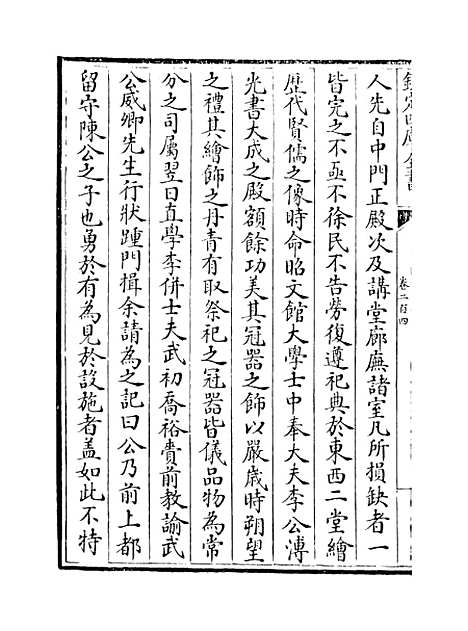 欽定四庫全書
卷二百四
人先自中門正殿次及講堂廊廡諸室凡所損缺者一
皆完之不亟不徐民不告勞復遵祀典於東西二堂繪
歴代賢儒之像時命昭文館大學士中奉大夫李公溥
光書大成之殿額餘功美其冠器之飾以嚴歳時朔望
之禮其繪飾之丹青有取祭祀之冠器皆儀品物為常
分之司屬翌日直學李併士夫武初喬裕賫前教諭武
公威卿先生行狀踵門揖余請為之記曰公乃前上都
留守陳公之子也勇於有為見於設施者蓋如此不特